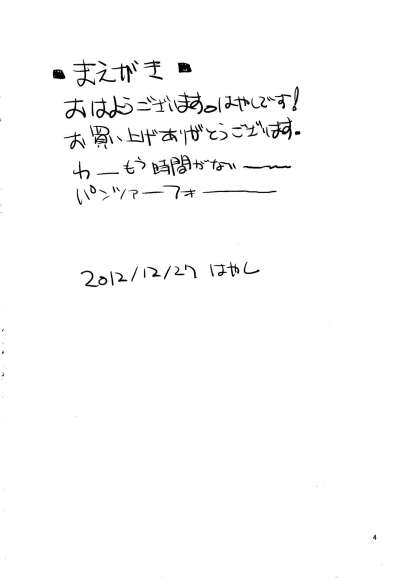 ■まえがき■
おはようございます。はやしです!
お買い上げありがとうございます。
わーもう時間がない～～
パンツァーフォー――
2012/12/27 はやし
4